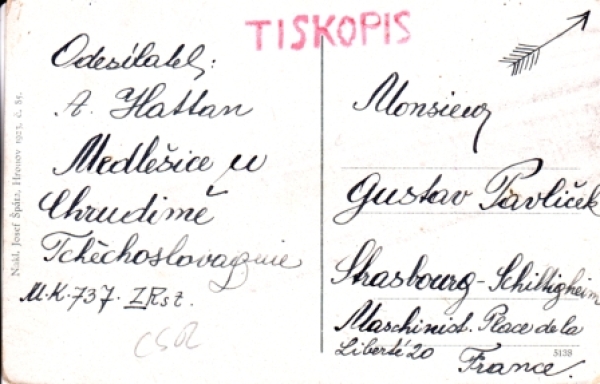 TISKOPIS
Odesílatel:
A. Hattan
Medlešice u
Chrudimě
Tchèchoslovaquie
M.K.737.
CSR
Nakl. Josef Špátz, Hronov 1923, č. 85.
Monsieur
Gustav Pavlíček
Strasbourg-Schiltigheim
Maschinist. Place de la
Liberté 20
France.
5138